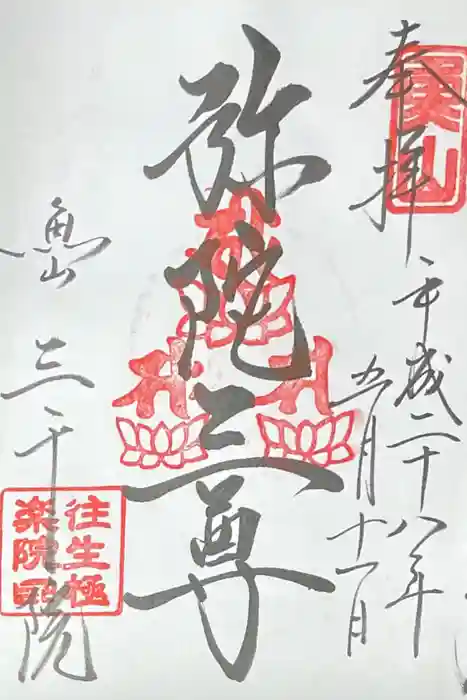 奉拝
平成二十八年
五月十一日
弥陀三尊
魚山
三千院
魚山
往生極
楽院印